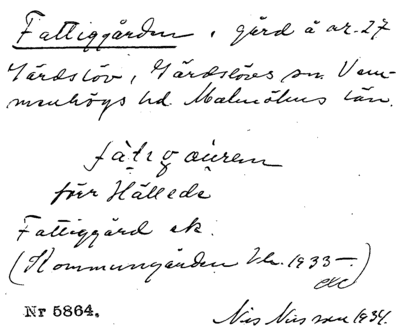 Fattiggården, gård å nr. 27
Gärdslöv, Gärdslövs sn Vem-
menhögs hd. Malmöhus län.
fàtıgǫúren
för Hållede
Fattiggård ek.
(Kommungården Vh. 1933-.)
Nr 5864.
Nils Nilsson 1934.